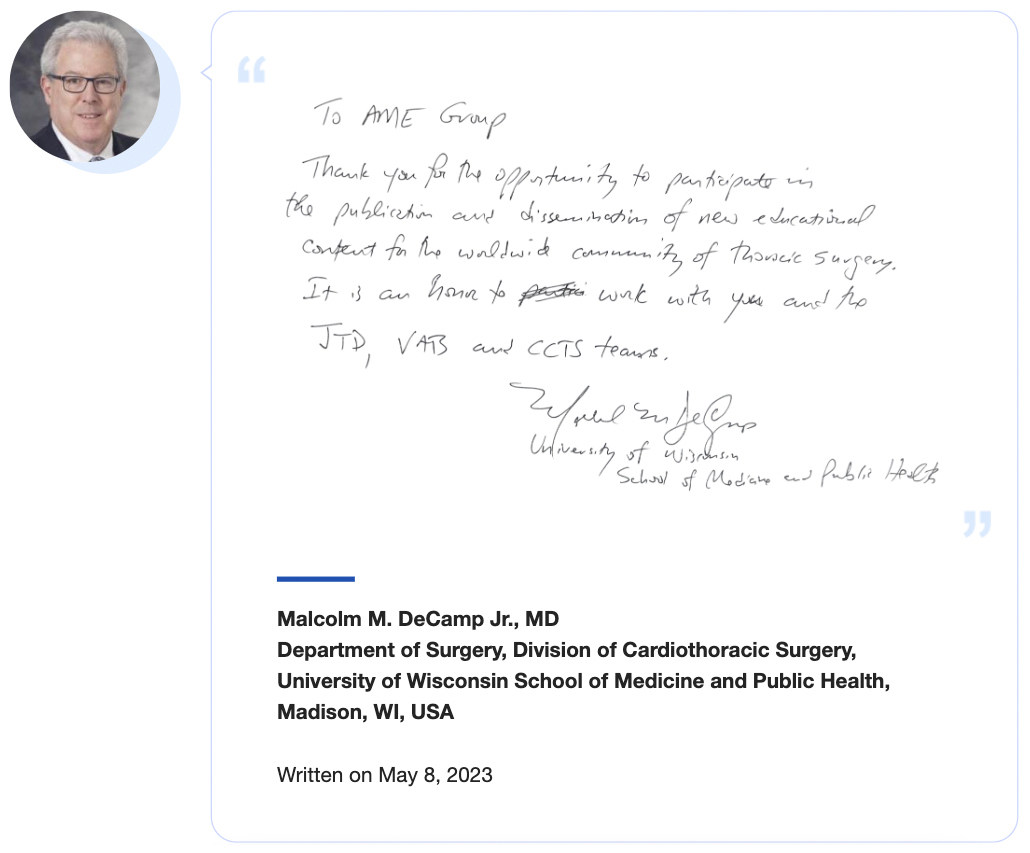 “
To AME Group
Thank you for the opportunity to participate in
the publication and dissemination of new educational
content for the worldwide community of thoracic surgery.
It is an honor to work with you and the
JTD, VATS and CCTS teams.
University of Wisconsin
School of Medicine and Public Health
”
Malcolm M. DeCamp Jr., MD
Department of Surgery, Division of Cardiothoracic Surgery,
University of Wisconsin School of Medicine and Public Health,
Madison, WI, USA
Written on May 8, 2023